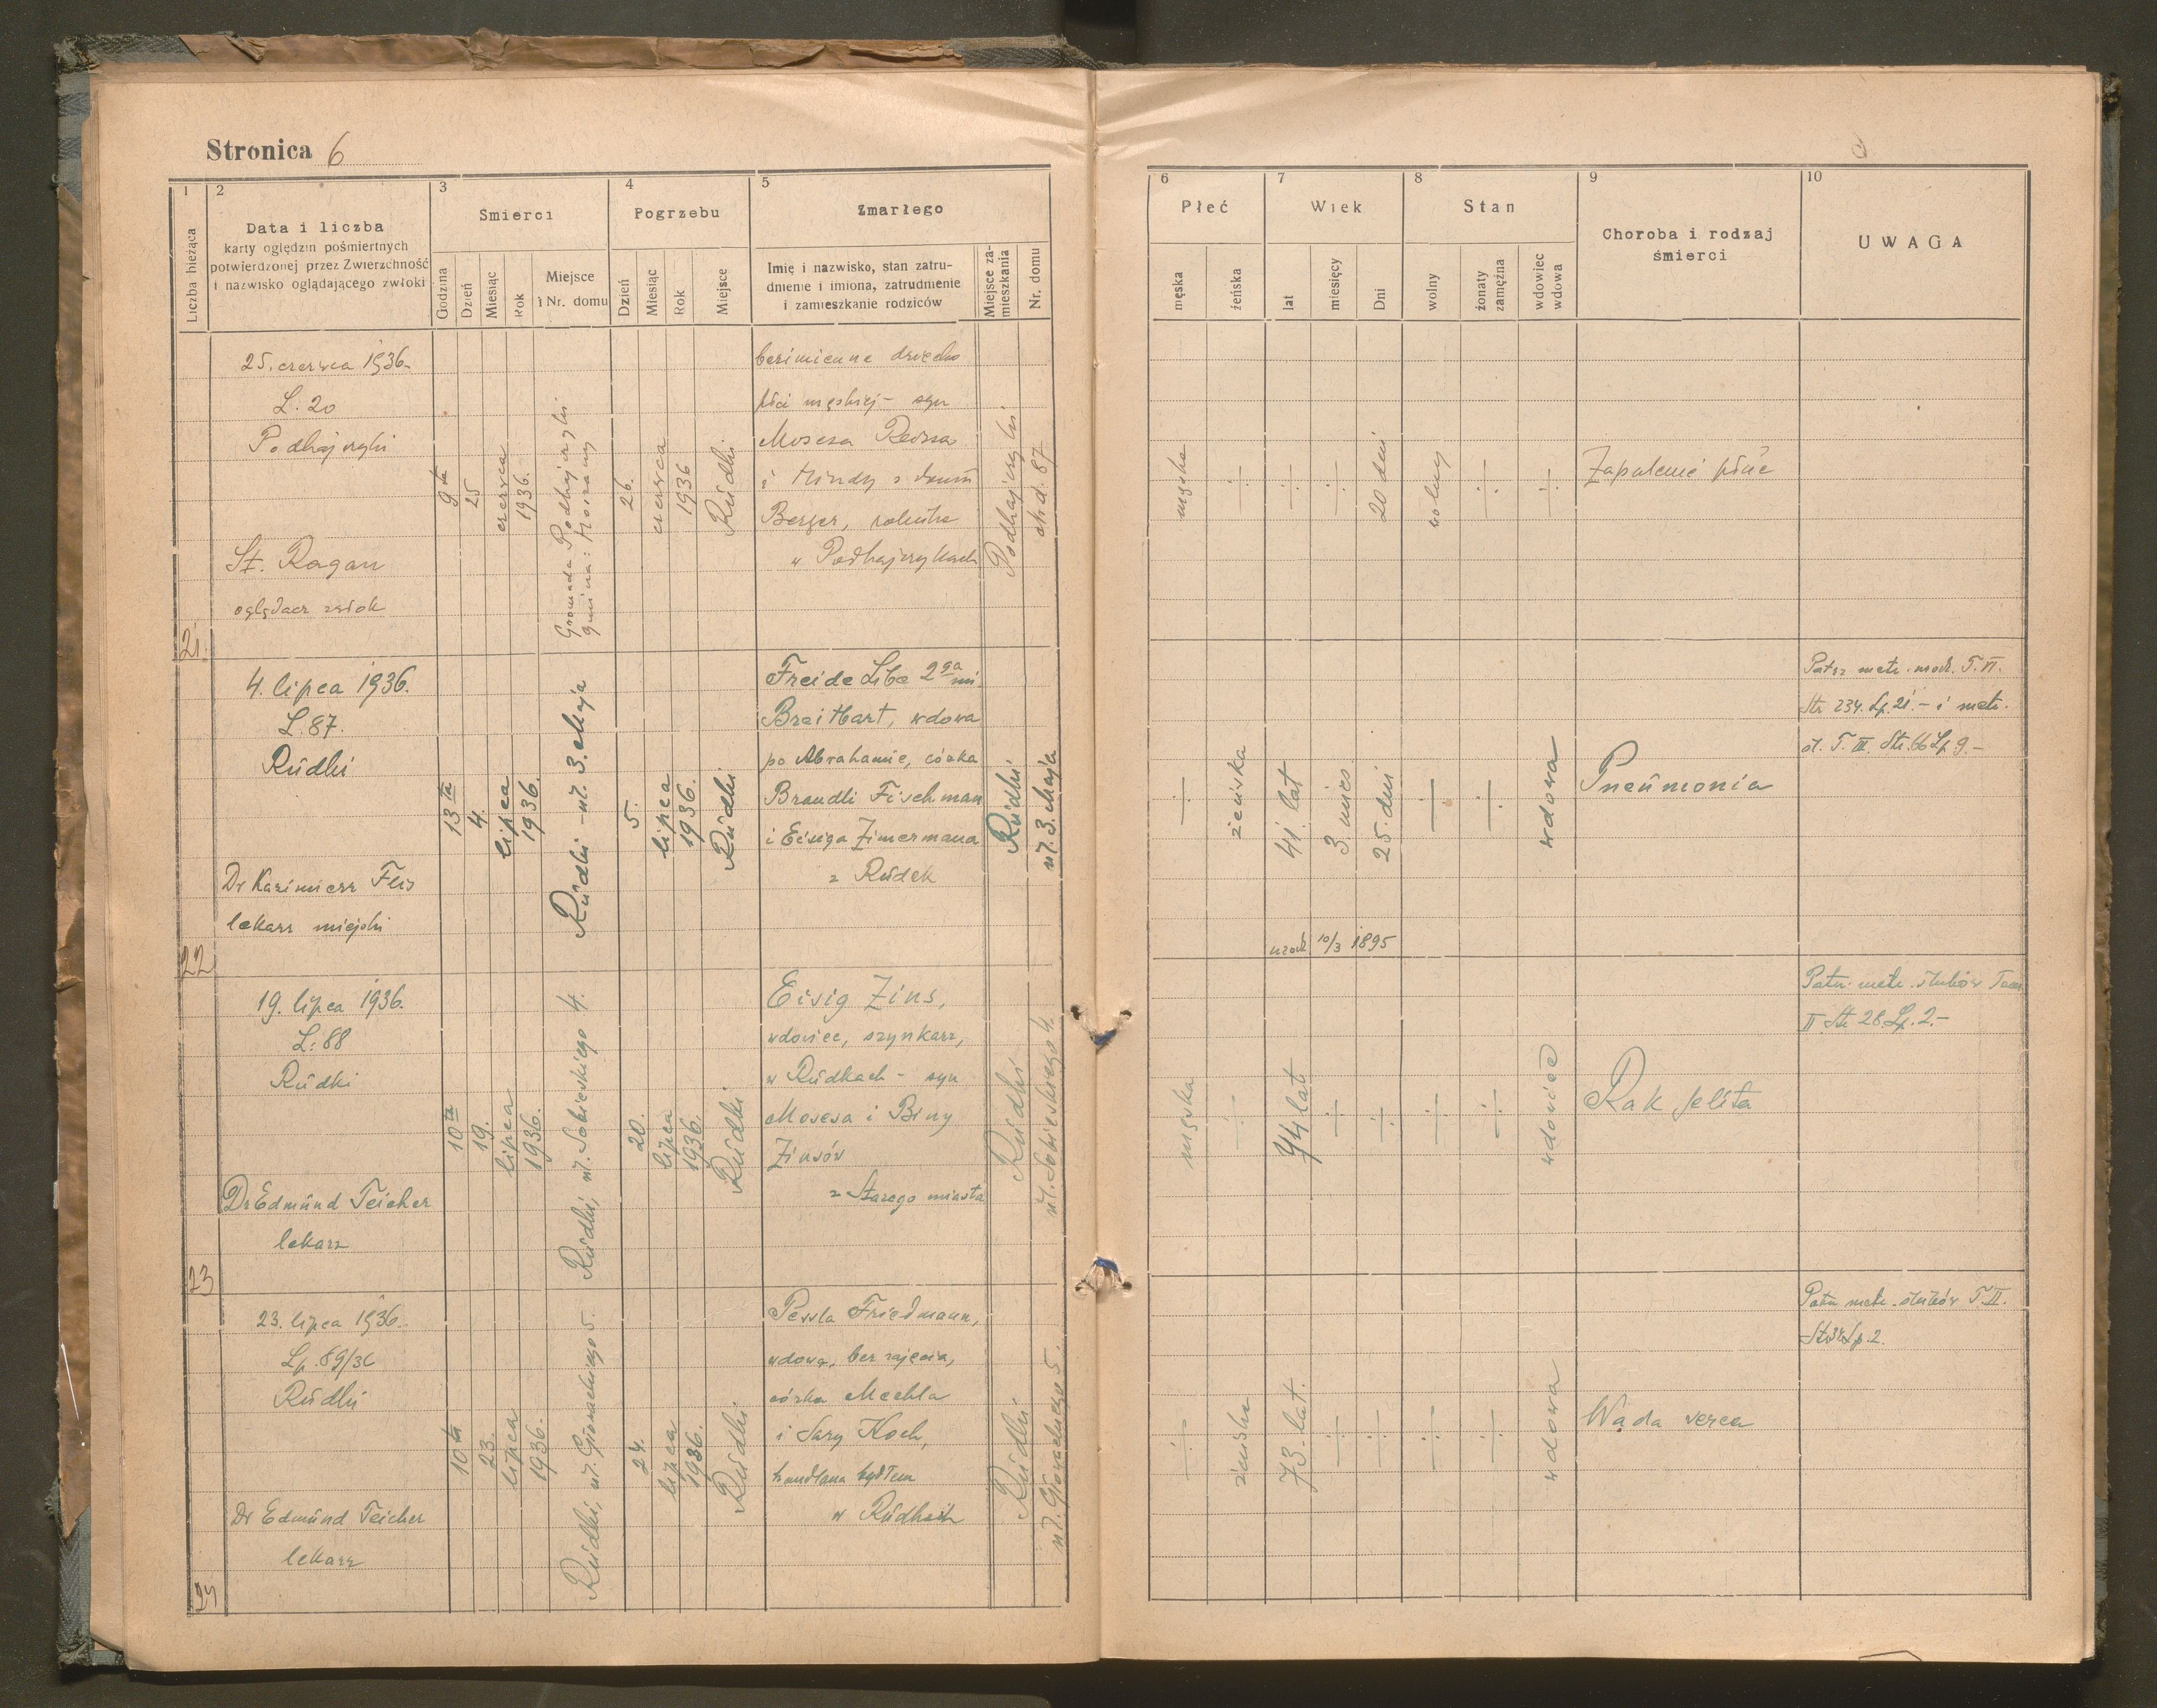 Stronica 6
1 2 3 4 5
Liczba bieżąca
Data i liczba
karty oględzin pośmiertnych
potwierdzonej przez Zwierzchność
i nazwisko oglądającego zwłoki
Smierci
Godzina
Dzień
Miesiąc
Rok
Miejsce
i Nr. domu
Pogrzebu
Dzień
Miesiąc
Rok
Miejsce
Zmarłego
Imię i nazwisko, stan zatru-
dnienie i imiona, zatrudnienie
i zamieszkanie rodziców
Miejsce za-
mieszkania
Nr. domu
6 7 8 9 10
Płeć
męska
żeńska
Wiek
lat
miesięcy
Dni
Stan
wolny
żonaty
zamężna
wdowiec
wdowa
Choroba i rodzaj
śmierci
UWAGA
21.
25. czerwca 1936.
L. 20
Podhajczyki
St. Ragan
oglądacz zwłok
9ta
25
czerwca
1936.
Gromada Podhajczyki
gmina: Hoszany
26.
czerwca
1936
Rudki
bezimienne dziecko
płci męskiej - syn
Mosesa
i Hindy z domu
Berger, rolnika
w Podhajczykach
Podhajczyki
87
męska
20 dni
wolny
Zapalenie płuc
22
4. lipca 1936.
L. 87.
Rudki
Dr Kazimierz Flis
lekarz miejski
13ta
4.
lipca
1936.
Rudki - ul. 3. Maja
5.
lipca
1936.
Rudki
Freide Liba 2ga im.
Breitbart, wdowa
po Abrahamie, córka
Brandli Fischman
i Eisiga Zimermana
z Rudek
Rudki
ul. 3. Maja
żeńska
41. lat
3. mies
25. dni
wdowa
urodz 10/3 1895
Pneumonia
Patrz metr. urodz. T. VI.
Str 234. Lp. 21. - i metr.
śl. T. III. Str. 66 Lp 9. -
23
19. lipca 1936.
L: 88
Rudki
Dr Edmund Teicher
lekarz
10ta
19.
lipca
1936.
Rudki, ul. Sobieskiego 4.
20.
lipca
1936.
Rudki.
Eisig Zins,
wdowiec, szynkarz,
w Rudkach - syn
Mosesa i Biny
Zinsów
z Starego miasta
Rudki
ul. Sobieskiego 4.
męska
74 lat
wdowiec
Rak jelita
Patrz metr. ślubów Tom
II Str 28 Lp. 2. -
24
23. lipca 1936.
Lp. 89/36
Rudki
Dr Edmund Teicher
lekarz
10ta
23.
lipca
1936.
Rudki, ul. Głowackiego 5.
24.
lipca
1936.
Rudki
Pessla Friedmann,
wdowa, bez zajęcia,
córka Mechla
i Sary Koch,
handlarza bydłem
w Rudkach
Rudki
ul. Głowackiego 5.
żeńska
73. lat.
wdowa
Wada serca
Patrz metr. ślubów T. II.
Lp. 2.